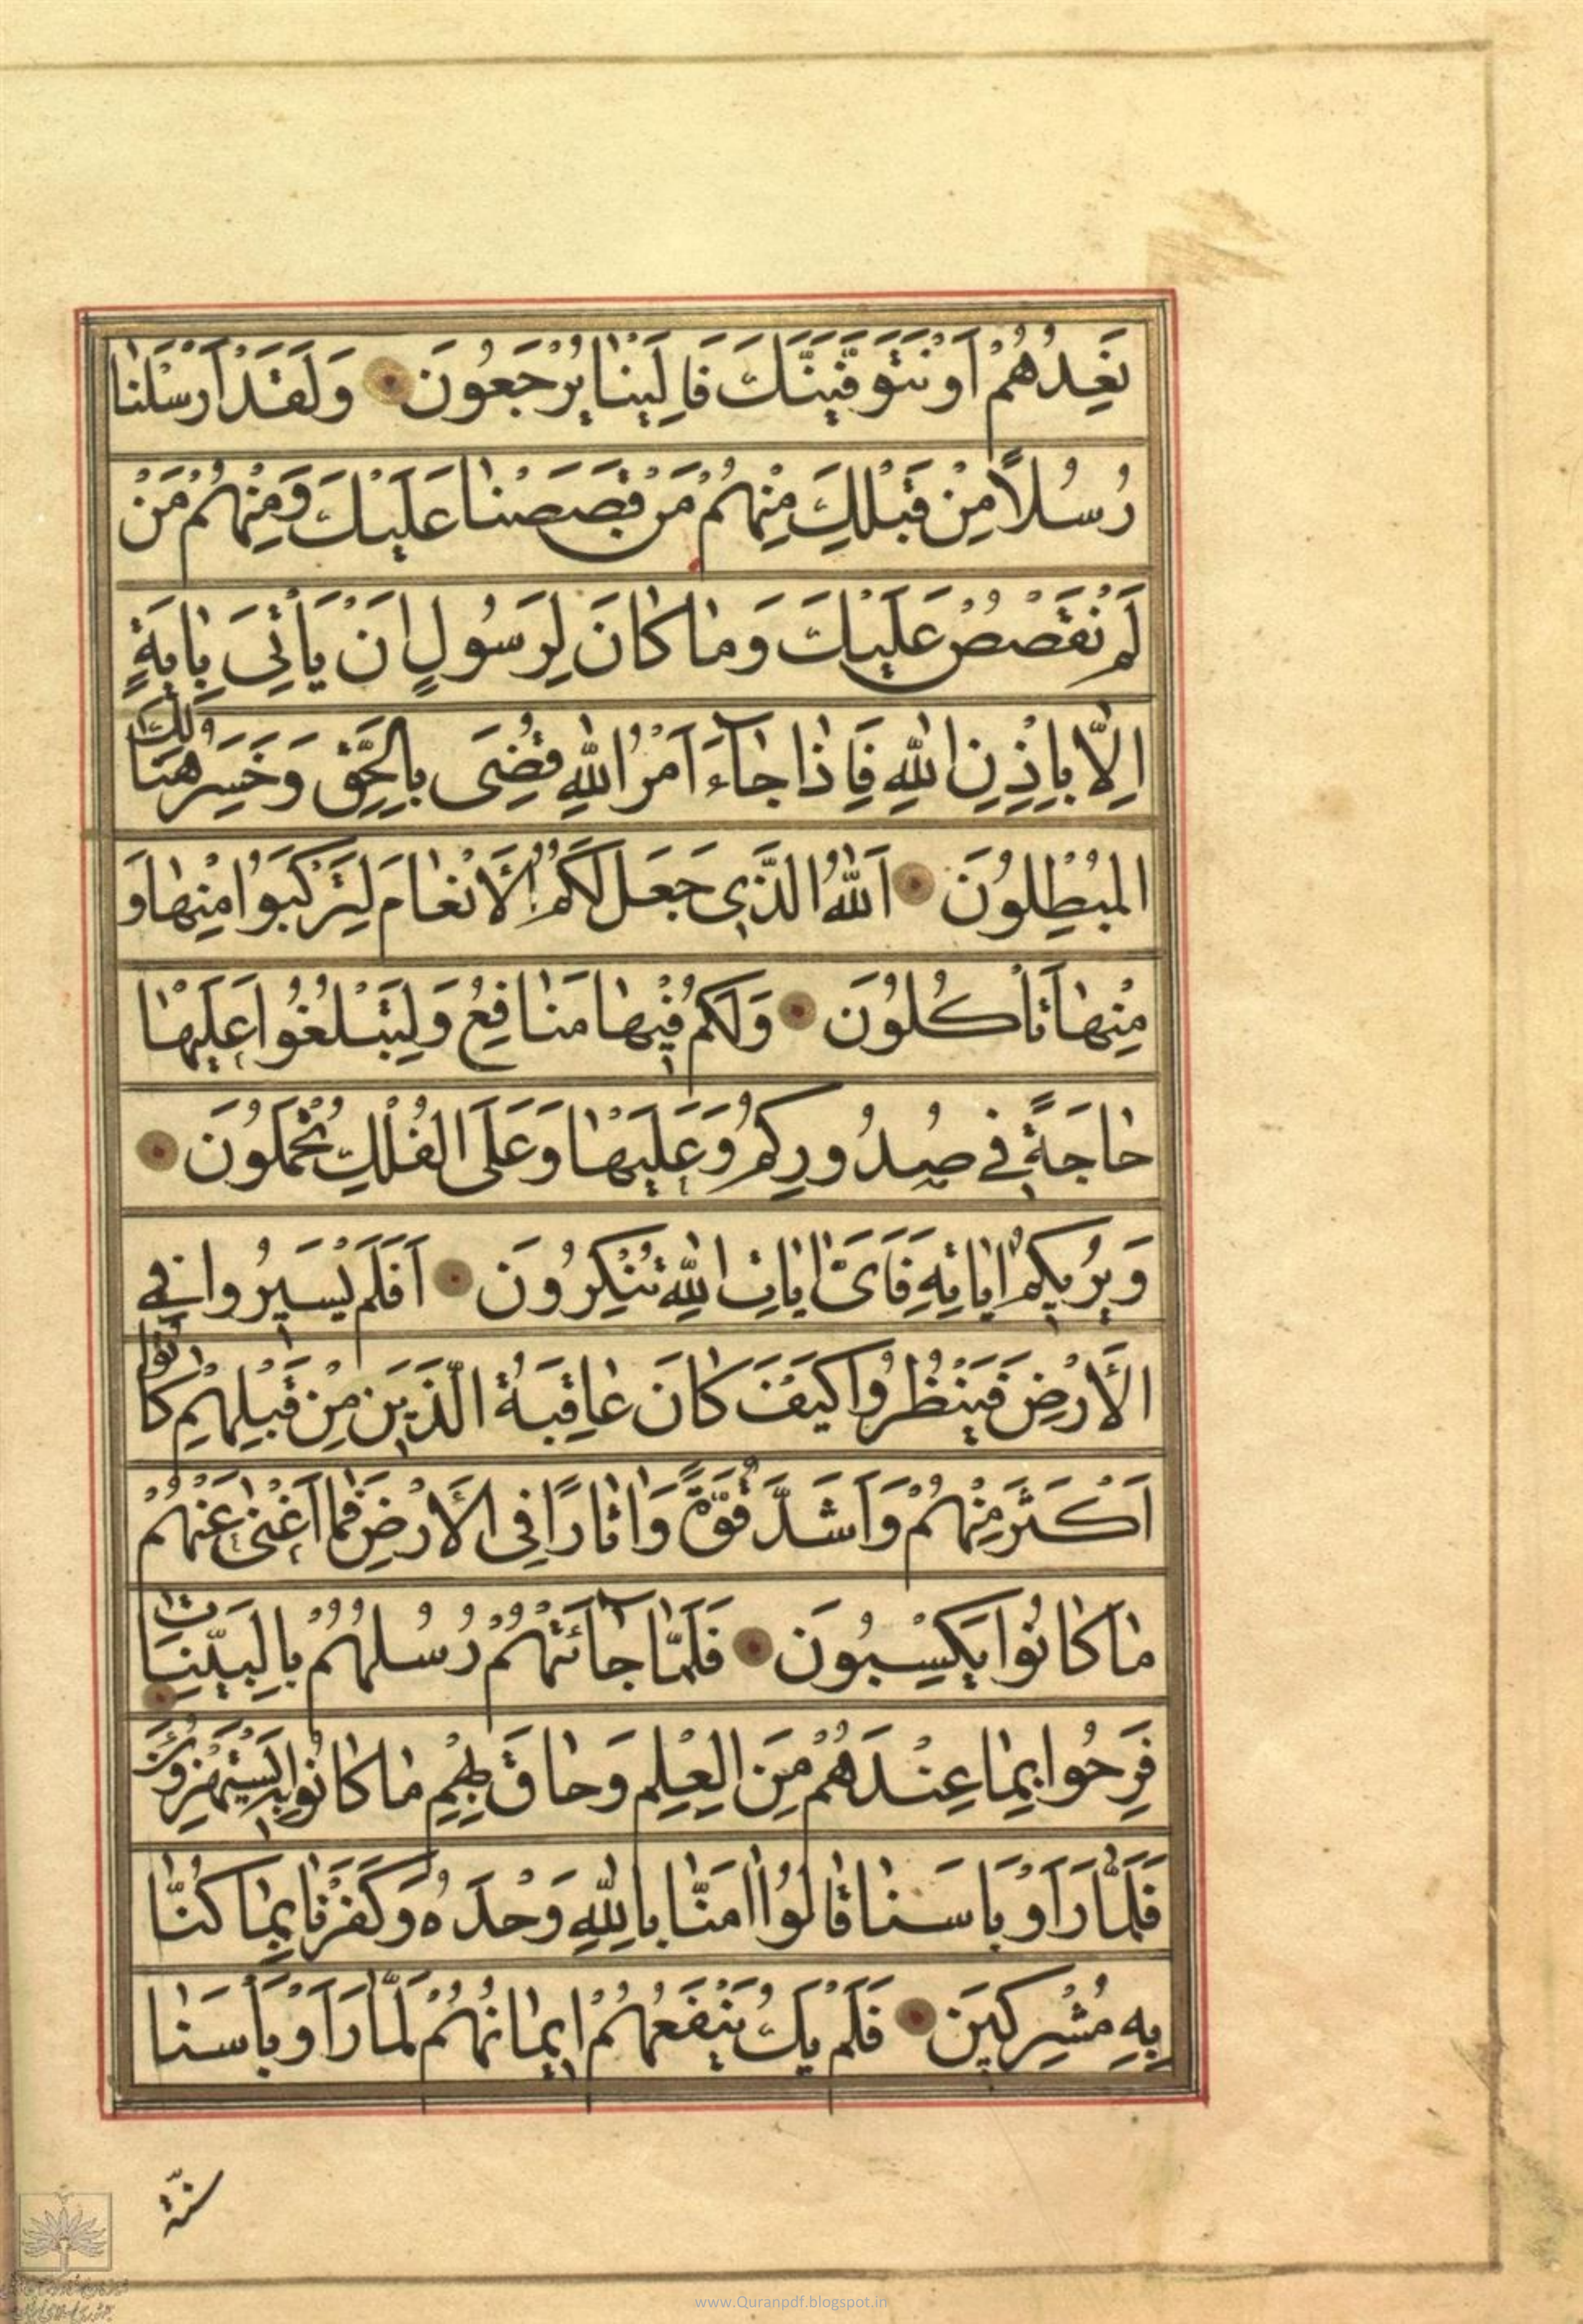 نَعِدُهُمْ اَوْ نَتَوَفَّيَنَّكَ فَاِلَيْنٰا يُرْجَعُونَ وَلَقَدْ اَرْسَلْنٰا
رُسُلاً مِنْ قَبْلِكَ مِنْهُمْ مَنْ قَصَصْنٰا عَلَيْكَ وَمِنْهُمْ مَنْ
لَمْ نَقْصُصْ عَلَيْكَ وَمٰا كٰانَ لِرَسُولٍ اَنْ يَأْتِيَ بِاٰيَةٍ
اِلّٰا بِاِذْنِ اللّٰهِ فَاِذٰا جٰاۤءَ اَمْرُ اللّٰهِ قُضِيَ بِالْحَقِّ وَخَسِرَ هُنٰالِكَ
الْمُبْطِلُونَ اَللّٰهُ الَّذِي جَعَلَ لَكُمُ الْاَنْعٰامَ لِتَرْكَبُوا مِنْهٰا وَ
مِنْهٰا تَأْكُلُونَ وَلَكُمْ فِيهٰا مَنٰافِعُ وَلِتَبْلُغُوا عَلَيْهٰا
حٰاجَةً فِي صُدُورِكُمْ وَعَلَيْهٰا وَعَلَى الْفُلْكِ تُحْمَلُونَ
وَيُرِيكُمْ اٰيٰاتِهِ فَاَيَّ اٰيٰاتِ اللّٰهِ تُنْكِرُونَ اَفَلَمْ يَسِيرُوا فِي
الْاَرْضِ فَيَنْظُرُوا كَيْفَ كٰانَ عٰاقِبَةُ الَّذِينَ مِنْ قَبْلِهِمْ كٰانُوا
اَكْثَرَ مِنْهُمْ وَاَشَدَّ قُوَّةً وَاٰثٰارًا فِي الْاَرْضِ فَمٰا اَغْنٰى عَنْهُمْ
مٰا كٰانُوا يَكْسِبُونَ فَلَمّٰا جٰاۤئَتْهُمْ رُسُلُهُمْ بِالْبَيِّنٰاتِ
فَرِحُوا بِمٰا عِنْدَهُمْ مِنَ الْعِلْمِ وَحٰاقَ بِهِمْ مٰا كٰانُوا بِهِ يَسْتَهْزِؤُنَ
فَلَمّٰا رَاَوْ بَاْسَنٰا قٰالُوا اٰمَنّٰا بِاللّٰهِ وَحْدَهُ وَكَفَرْنٰا بِمٰا كُنّٰا
بِهِ مُشْرِكِينَ فَلَمْ يَكُ يَنْفَعُهُمْ اِيمٰانُهُمْ لَمّٰا رَاَوْ بَأْسَنٰا
سُنَّةَ
www.Quranpdf.blogspot.in